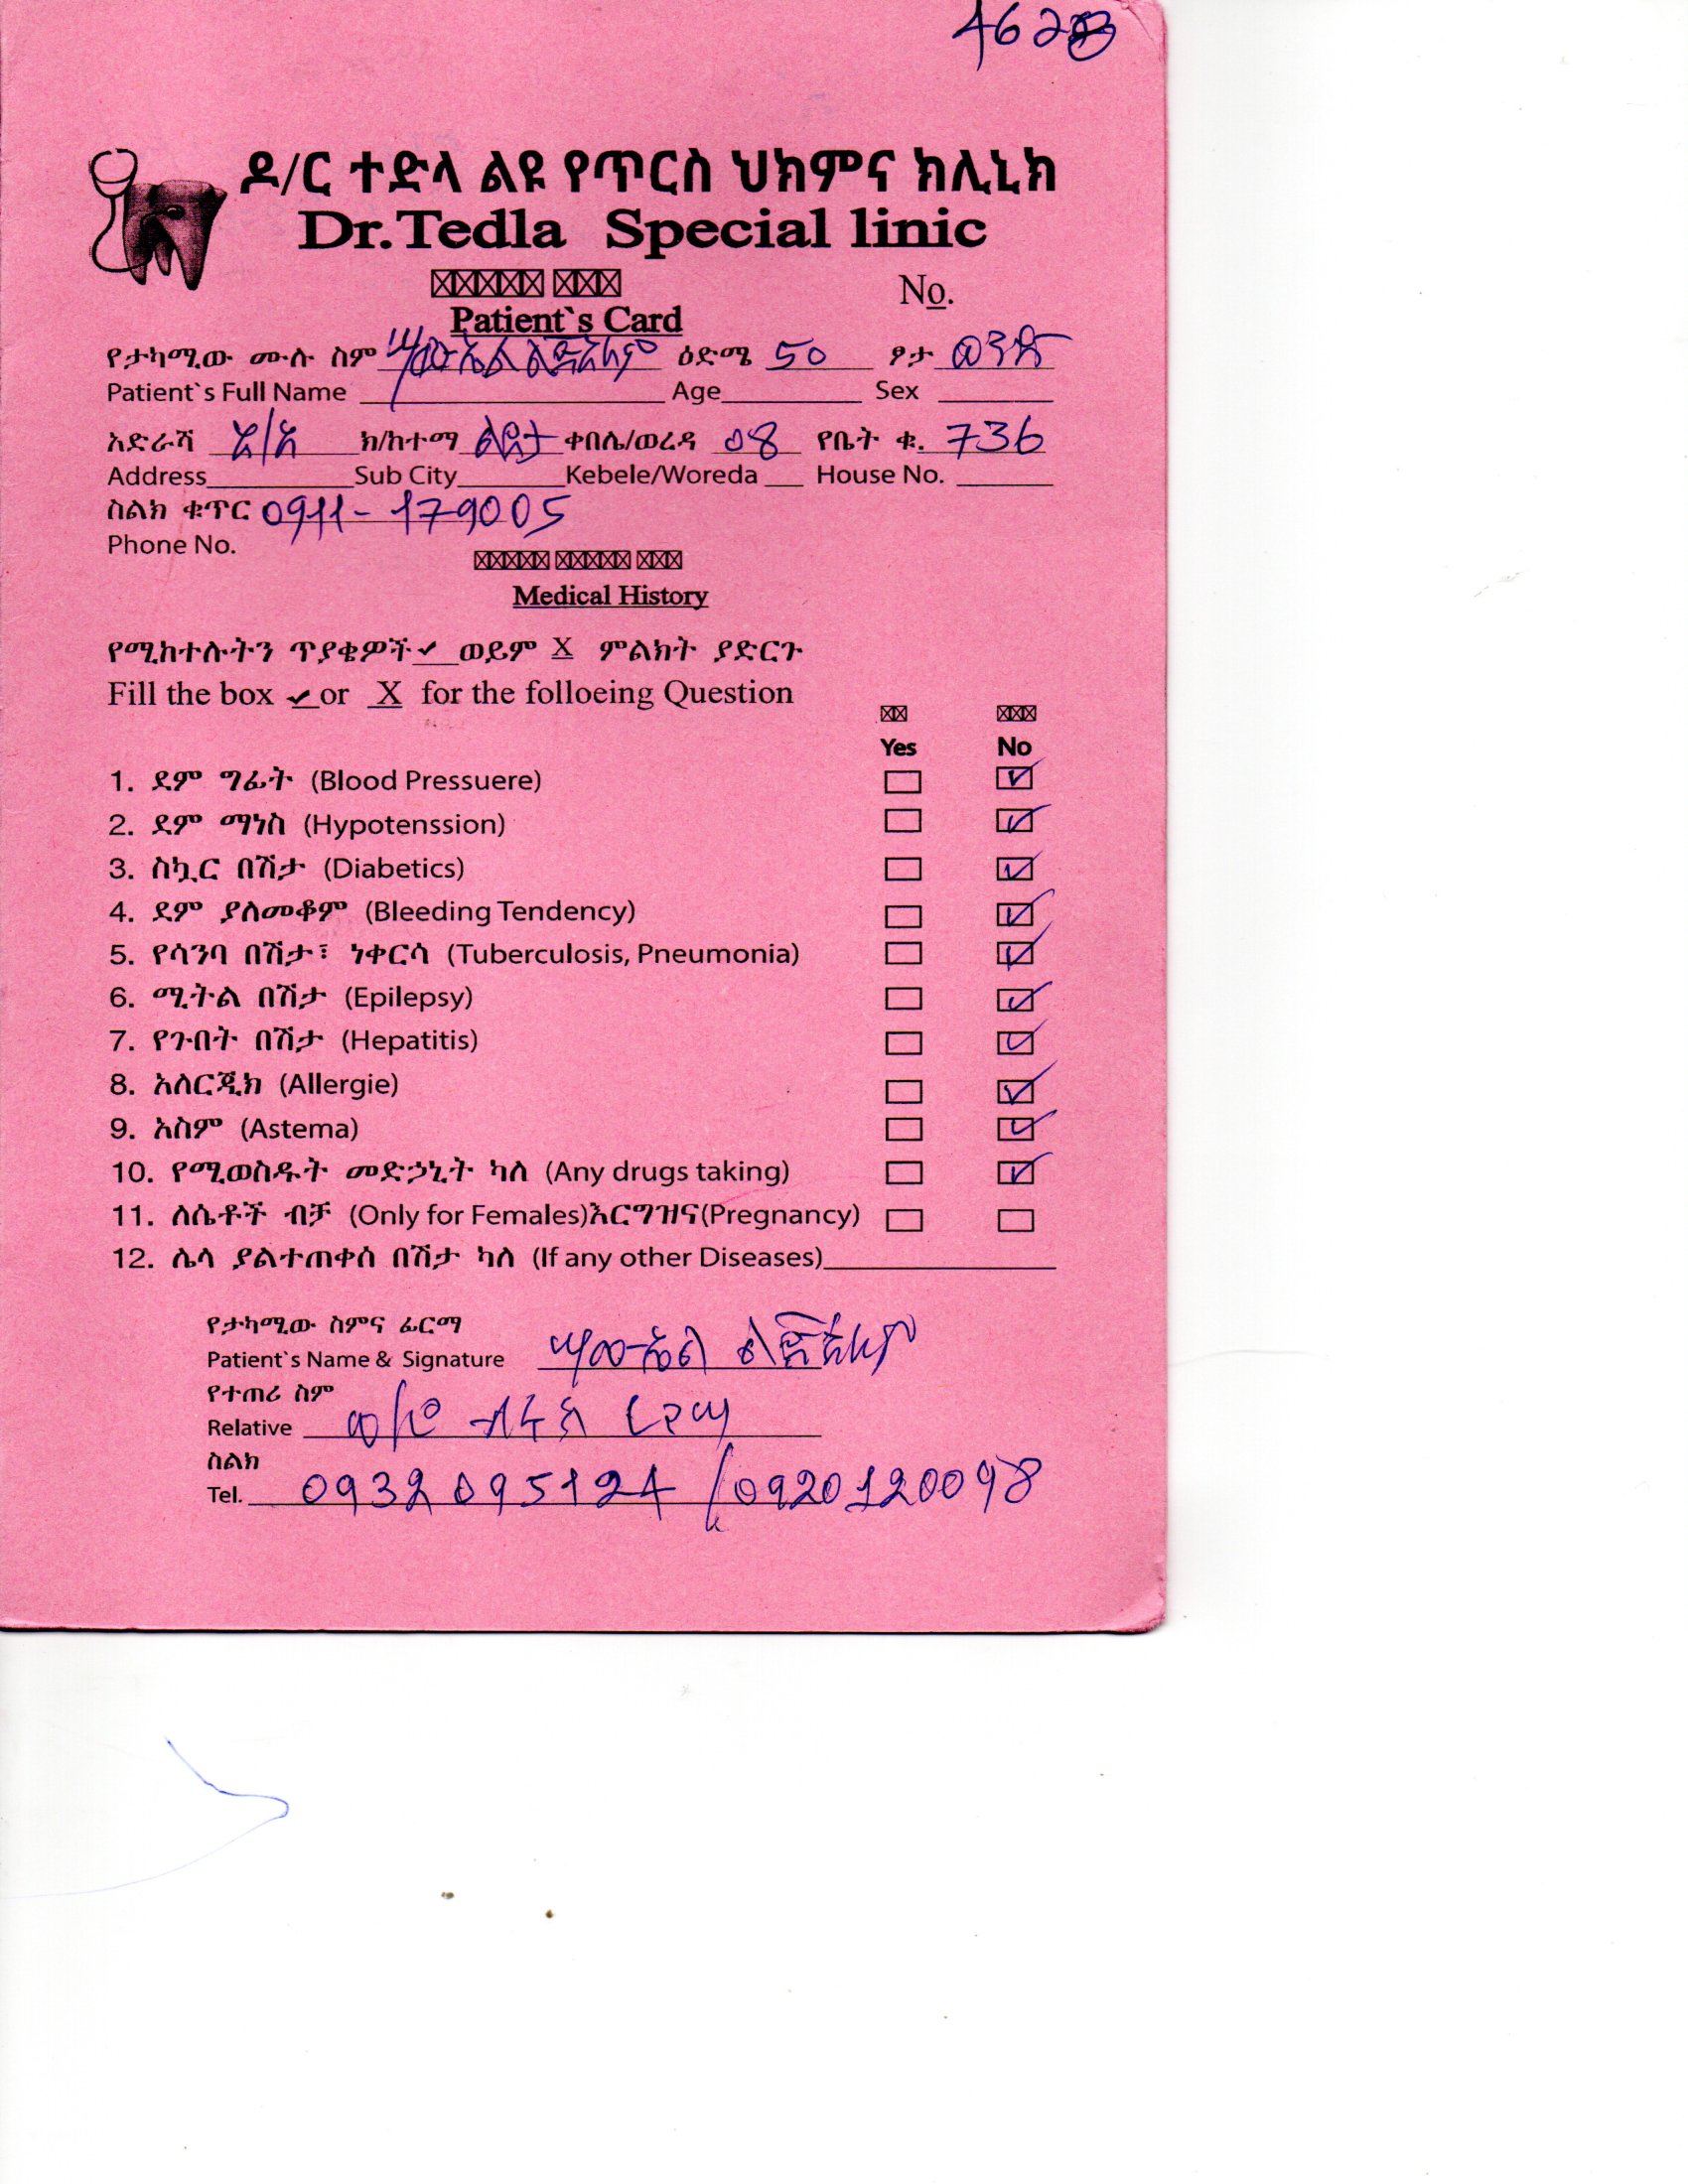 ዶ/ር ተድላ ልዩ የጥርስ ህክምና ክሊኒክ
Dr.Tedla Special linic
No.
Patient`s Card
የታካሚው ሙሉ ስም ሣሙኤል ልጅዓለም ዕድሜ 50 ፆታ ወንድ
Patient`s Full Name Age Sex
አድራሻ አ/አ ክ/ከተማ ልደታ ቀበሌ/ወረዳ 08 የቤት ቁ. 736
Address Sub City Kebele/Woreda House No.
ስልክ ቁጥር 0911-179005
Phone No.
Medical History
የሚከተሉትን ጥያቄዎች ✔ ወይም X ምልክት ያድርጉ
Fill the box ✔ or X for the folloeing Question
Yes No
1. ደም ግፊት (Blood Pressuere)
2. ደም ማነስ (Hypotenssion)
3. ስኳር በሽታ (Diabetics)
4. ደም ያለመቆም (Bleeding Tendency)
5. የሳንባ በሽታ፣ ነቀርሳ (Tuberculosis, Pneumonia)
6. ሚትል በሽታ (Epilepsy)
7. የጉበት በሽታ (Hepatitis)
8. አለርጂክ (Allergie)
9. አስም (Astema)
10. የሚወስዱት መድኃኒት ካለ (Any drugs taking)
11. ለሴቶች ብቻ (Only for Females)እርግዝና(Pregnancy)
12. ሌላ ያልተጠቀሰ በሽታ ካለ (If any other Diseases)
የታካሚው ስምና ፊርማ
Patient`s Name & Signature ሣሙኤል ልጅዓለም
የተጠሪ ስም
Relative ወ/ሮ
ስልክ
Tel. 0932095124 / 0920120098